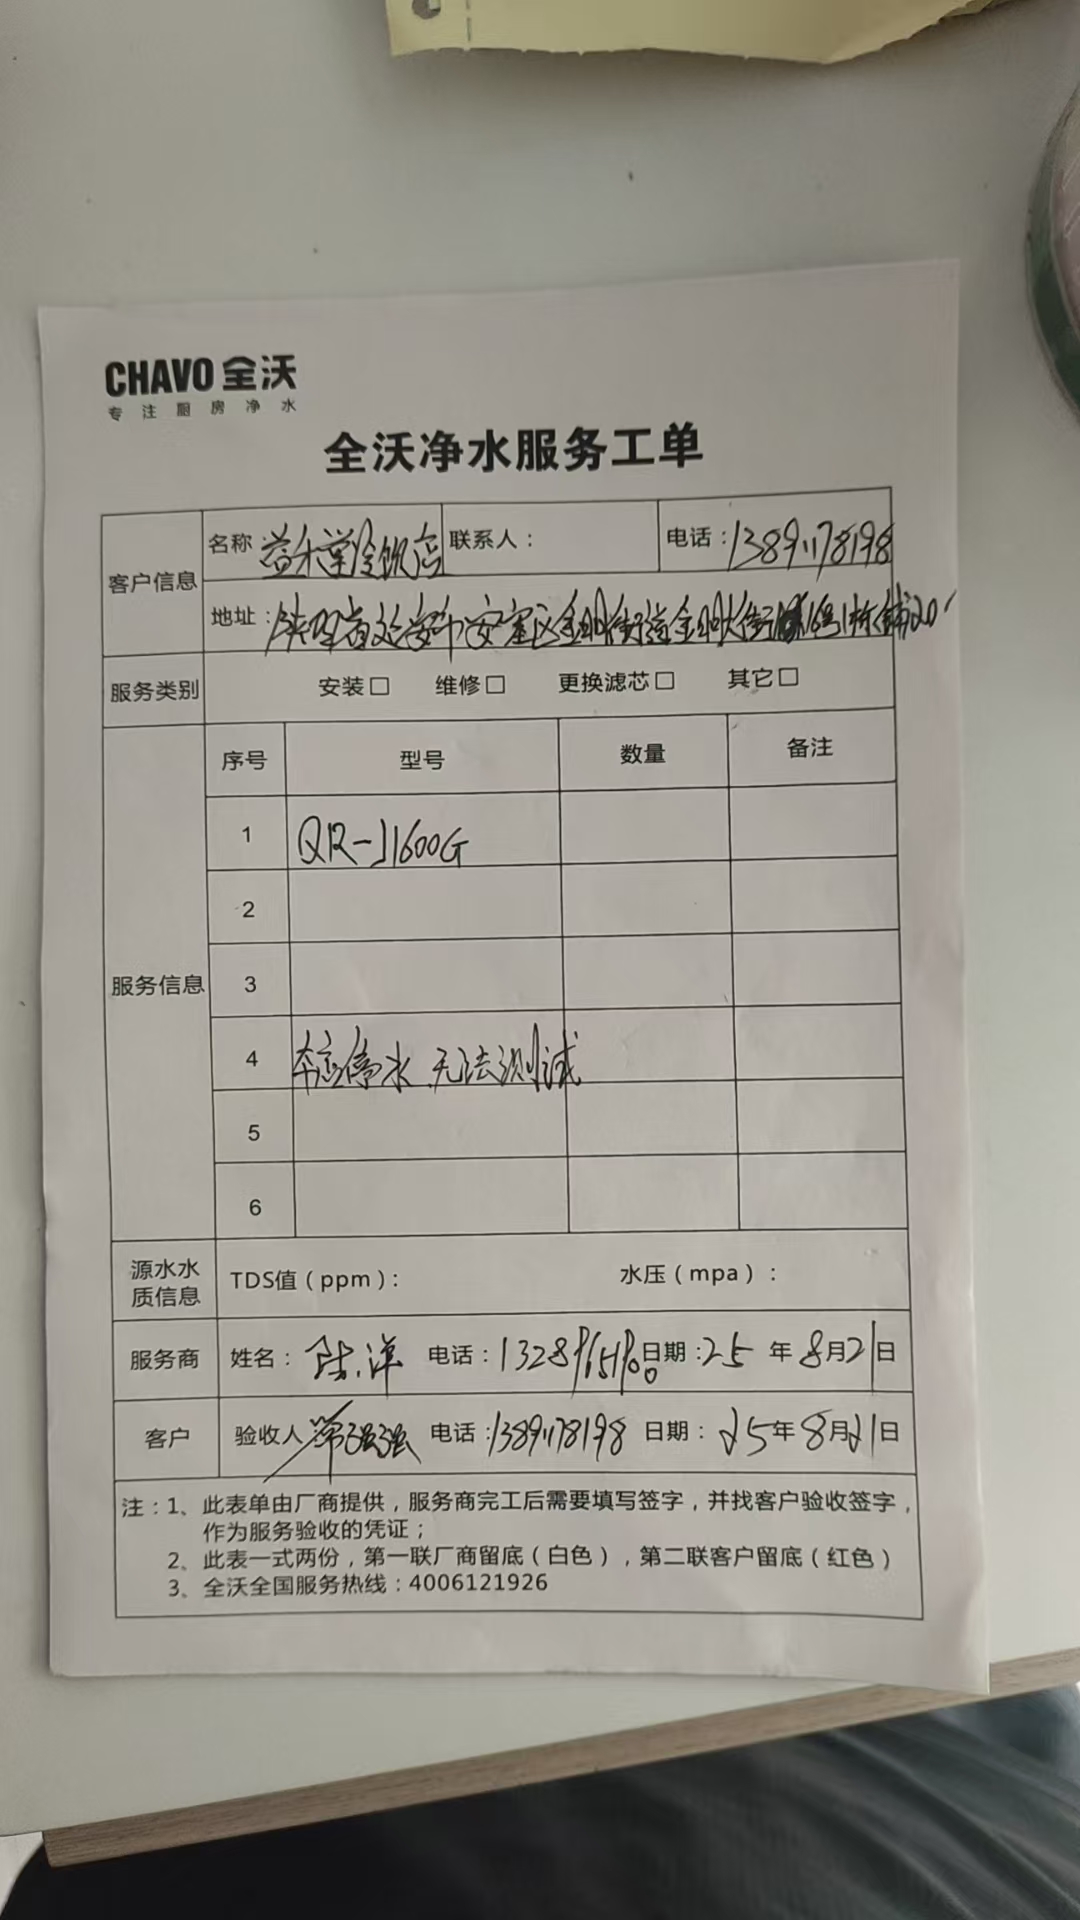 CHAVO 全沃
专注厨房净水
全沃净水服务工单
客户信息
名称：益禾堂冷饮店 联系人： 电话：13891178198
地址：陕西省延安市安塞区金明街道金明大街 16号1栋铺20
服务类别 安装□ 维修□ 更换滤芯□ 其它□
服务信息
序号 型号 数量 备注
1 QR-J1600G
2
3
4 本店停水 无法测试
5
6
源水水质信息 TDS值（ppm）： 水压（mpa）：
服务商 姓名： 洋 电话：1328 日期：25 年 8月21日
客户 验收人 强强 电话：13891178198 日期：25年8月21日
注：1、此表单由厂商提供，服务商完工后需要填写签字，并找客户验收签字，
作为服务验收的凭证；
2、此表一式两份，第一联厂商留底（白色），第二联客户留底（红色）
3、全沃全国服务热线：4006121926